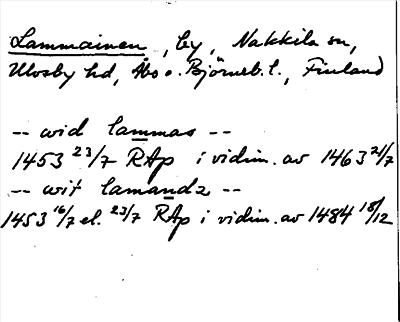 Lammainen, by, Nakkila sn,
Ulvsby hd, Åbo o. Björneb. l., Finland
-- wid lammas --
1453 23/7 RAp i vidim. av 1463 21/7
-- wit lamandz --
1453 16/7 el. 23/7 RAp i vidim. av 1484 18/12